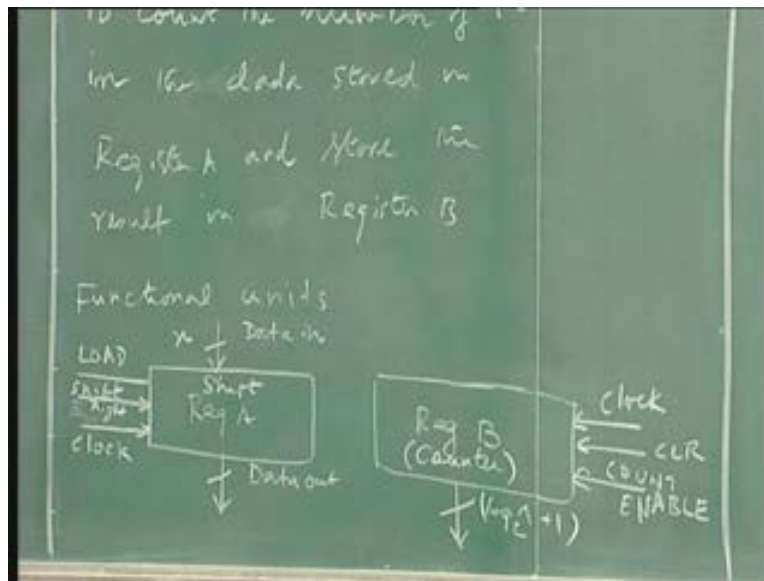 to count the number of 1's
in the dada stored in
Register A and store the
result in Register B
Functional units
n Data in
LOAD
Shift
Right
Clock
Shift
Reg A
Data out
Reg B
(Counter)
Clock
CLR
COUNT
ENABLE